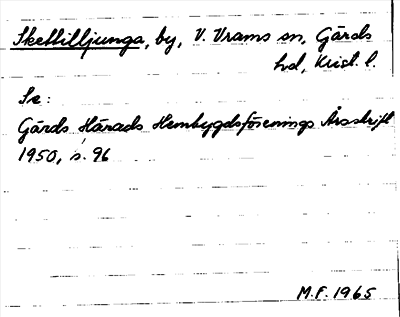 Skettilljunga, by, V. Vrams sn, Gärds
hd, Krist. l.
Se:
Gärds Härads Hembygdsförenings Årsskrift
1950, s. 96
M.F. 1965